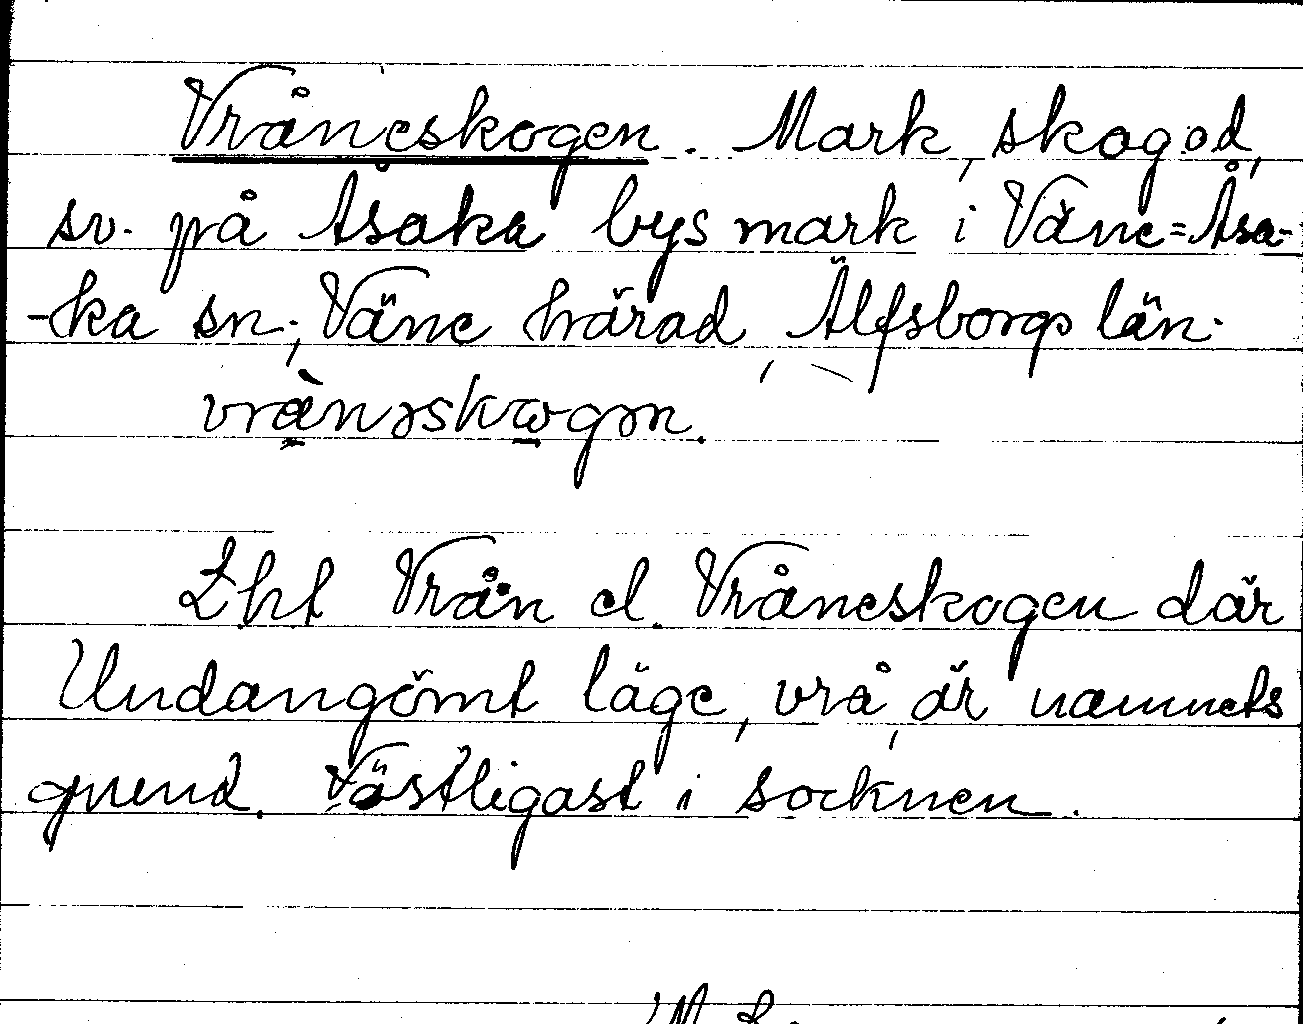 Vråneskogen. Mark, skogod,
sv. på Åsaka bys mark i Väne=Åsa-
-ka sn., Väne härad, Älfsborgs län.
vrànəskωgən.
Lht Vrån el. Vråneskogen där
Undangömt läge, vrå, är namnets
grund. Västligast i socknen.